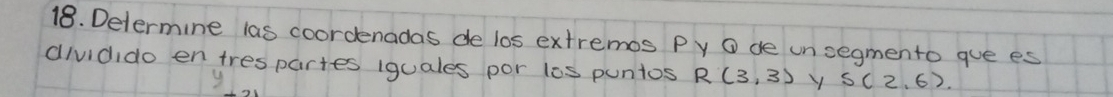 18. Determine las coordenadas de los extremos P y Q de un segmento que es
dividido en tres partes iguales por los puntos R(3,3) y S(2,6).
y